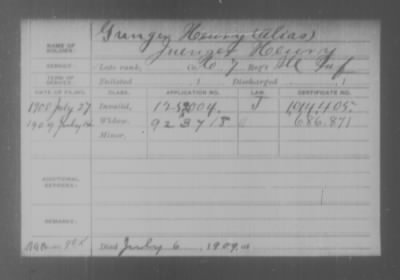 NAME OF SOLDIER:
Gunger Henry (alias)
Juenger Henry
SERVICE:
Late rank, Co. 7, Reg't Ill Inf
TERM OF SERVICE:
Enlisted , 1 Discharged , 1
DATE OF FILING. CLASS. APPLICATION NO. LAW. CERTIFICATE NO.
1900 July 27 Invalid, J 1,044,405
1909 July 12 Widow, 923718 686.871
Minor,
ADDITIONAL SERVICES:
REMARKS:
Died July 6, 1909, at